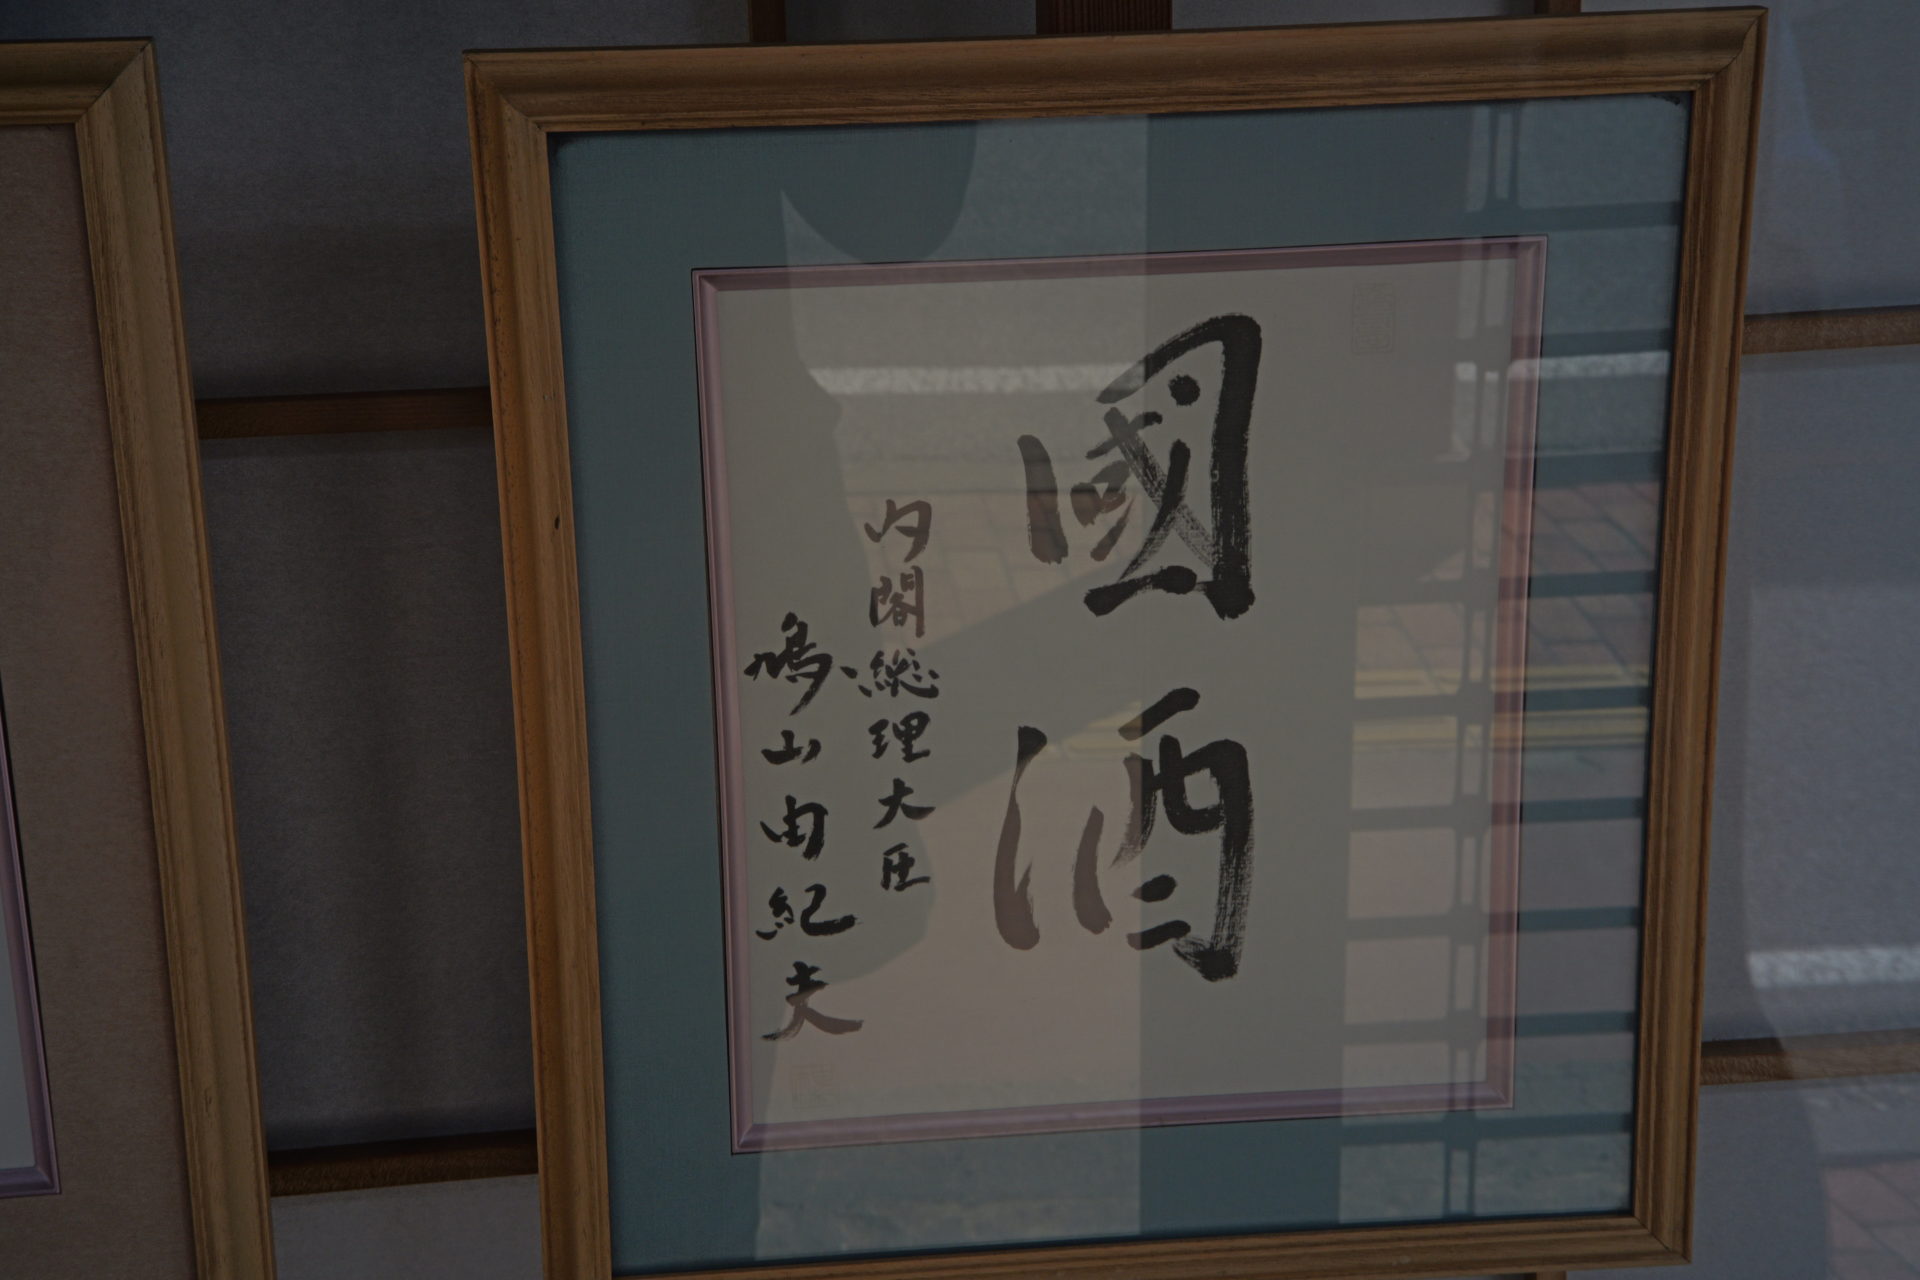 國酒
内閣総理大臣
鳩山由紀夫